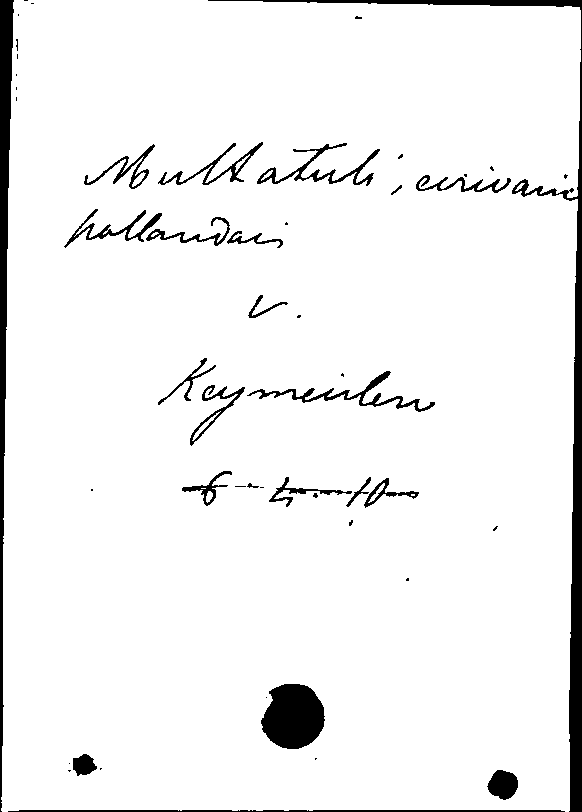 Multatuli, écrivain
hollandais
v.
Keymeulen
6 - 4 - 10